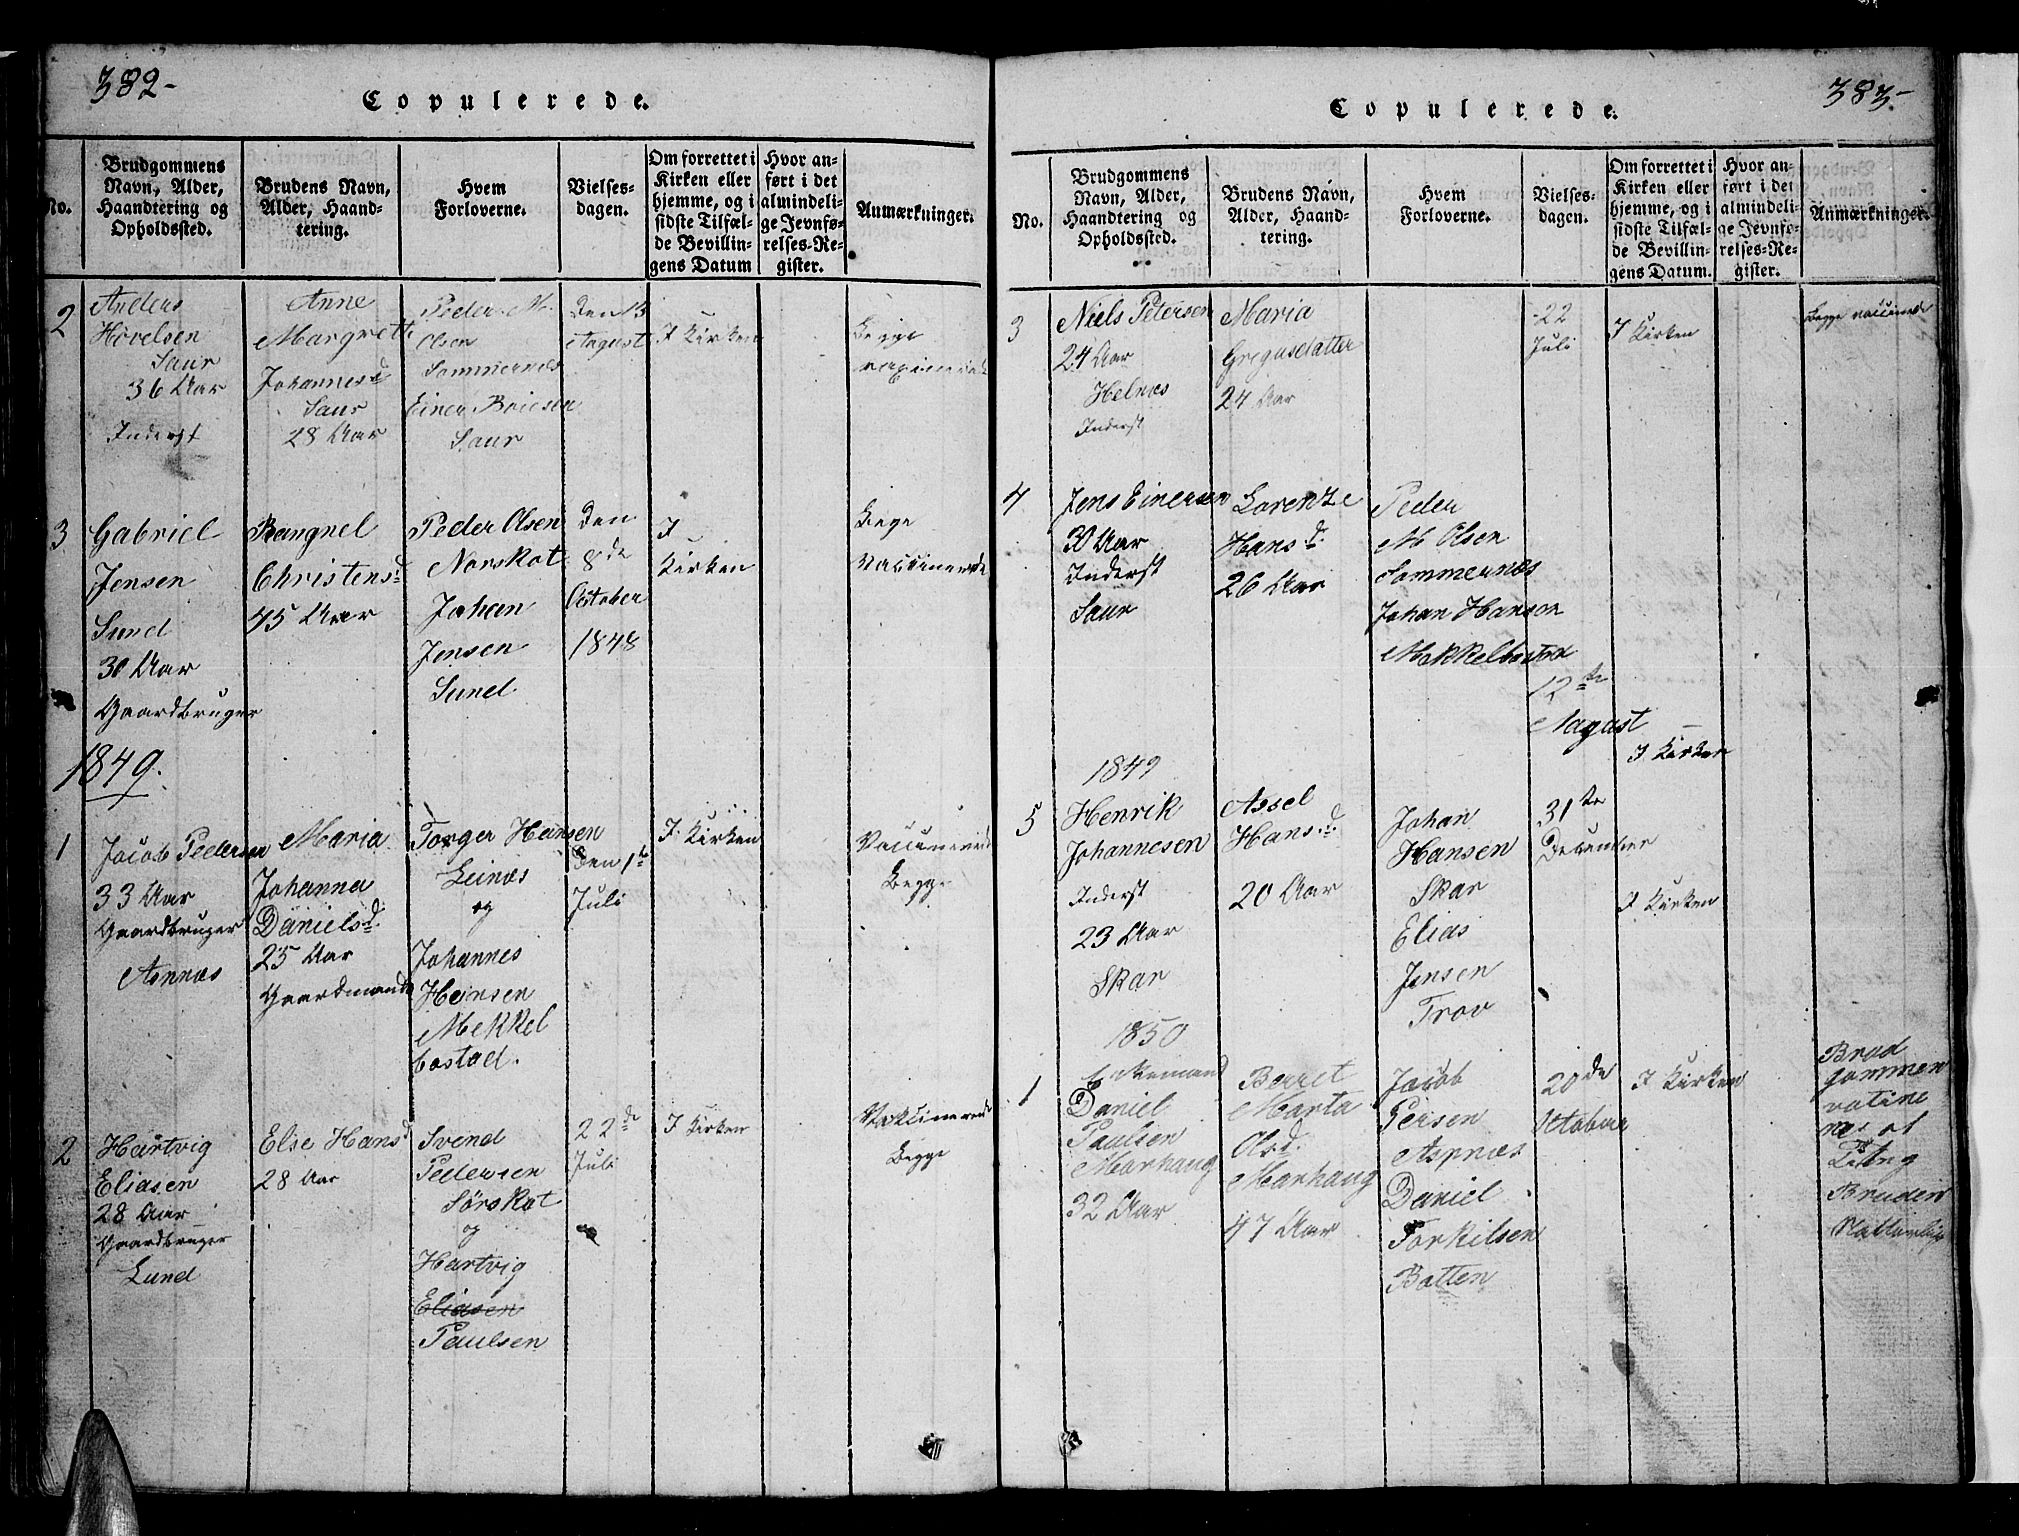 382-
Copulerede.
No.
Brudgommens
Navn, Alder,
Haandtering og
Opholdssted.
Brudens Navn,
Alder, Haand-
tering.
Hvem
Forloverne.
Vielses-
dagen.
Om forrettet i
Kirken eller
hjemme, og i
sidste Tilfæl-
de Bevillin-
gens Datum
Hvor an-
ført i det
almindeli-
ge Jevnfø-
relses-Re-
gister.
Anmærkninger.
2
Anders
Hövelsen
Saur
36 Aar
Inderst
Anne
Margrett
Johannesd
Saur
28 Aar
Peder M.
Olsen
Sommernæs
Einer Boiesen
Saur
Den 13
August
I Kirken
Begge
3
Gabriel
Jensen
Sund
30 Aar
Gaardbruger
Rangnel
Christensd
45 Aar
Peder Olsen
Norskot
Johan
Jensen
Sund
Den
8de
October
1848
I
Kirken
Bege
Vaccinerede
1849.
1
Jacob Pedersen
33 Aar
Gaardbruger
Aspnæs
Maria
Johanna
Danielsd.
25 Aar
Gaardmands
Torger Hansen
Leinæs
og
Johannes
Hansen
Mekkel
bostad.
Den 1te
Juli
I Kirken
Vaccinerede
Begge
2
Hartvig
Eliasen
28 Aar
Gaardbruger
Lund
Else Hansd
28 Aar
Svend
Pedersen
Sörskot
og
Hartvig
Eliasen
Paulsen
22de
Juli
I Kirken
Vakcinerede
Begge
383-
Copulerede.
No.
Brudgommens
Navn, Alder,
Haandtering og
Opholdssted.
Brudens Navn,
Alder, Haand-
tering.
Hvem
Forloverne.
Vielses-
dagen.
Om forrettet i
Kirken eller
hjemme, og i
sidste Tilfæl-
de Bevillin-
gens Datum.
Hvor an-
ført i det
almindeli-
ge Jevnfø-
relses-Re-
gister.
Anmærkninger.
3
Niels Petersen
24 Aar
Helnæs
Inderst
Maria
Gregusdatter
24 Aar
22
Juli
I Kirken
Begge vaccinerede
4
Jens Einersen
30 Aar
Inderst
Saur
Lorentze
Hansd.
26 Aar
Peder
M Olsen
Sommernæs
Johan Hanson
Mekkelbostad
12te
August
I Kirken
1849
5
Henrik
Johannesen
Inderst
23 Aar
Skar
Assel
Hans.d.
20 Aar
Johan
Hansen
Skar
Elias
Jensen
Trov
31te
December
I Kirken
1850
1
Enkemand
Daniel
Paulsen
Marhaug
32 Aar
Berret
Marta
Olsd.
Marhaug
47 Aar
Jacob
Persen
Aspnæs
Daniel
Torkilsen
Botten
20de
October
I Kirken
Brud
gommen
Bruden